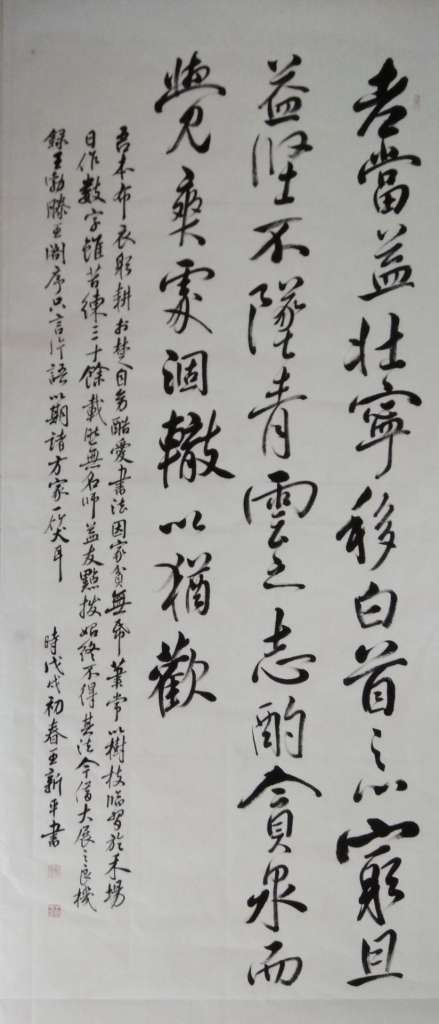 老當益壯寧移白首之心窮且
益堅不墜青雲之志酌貪泉而
覺爽處涸轍以猶歡
吾本布衣躬耕於楚自幼酷愛書法因家貧無帋筆常以樹枝臨習於禾場
日作數字雖苦練三十餘載然無名師益友點撥始終不得其法今借大展之良機
錄王勃滕王閣序只言片語以期諸方家一笑耳 時戊戌初春王新平書